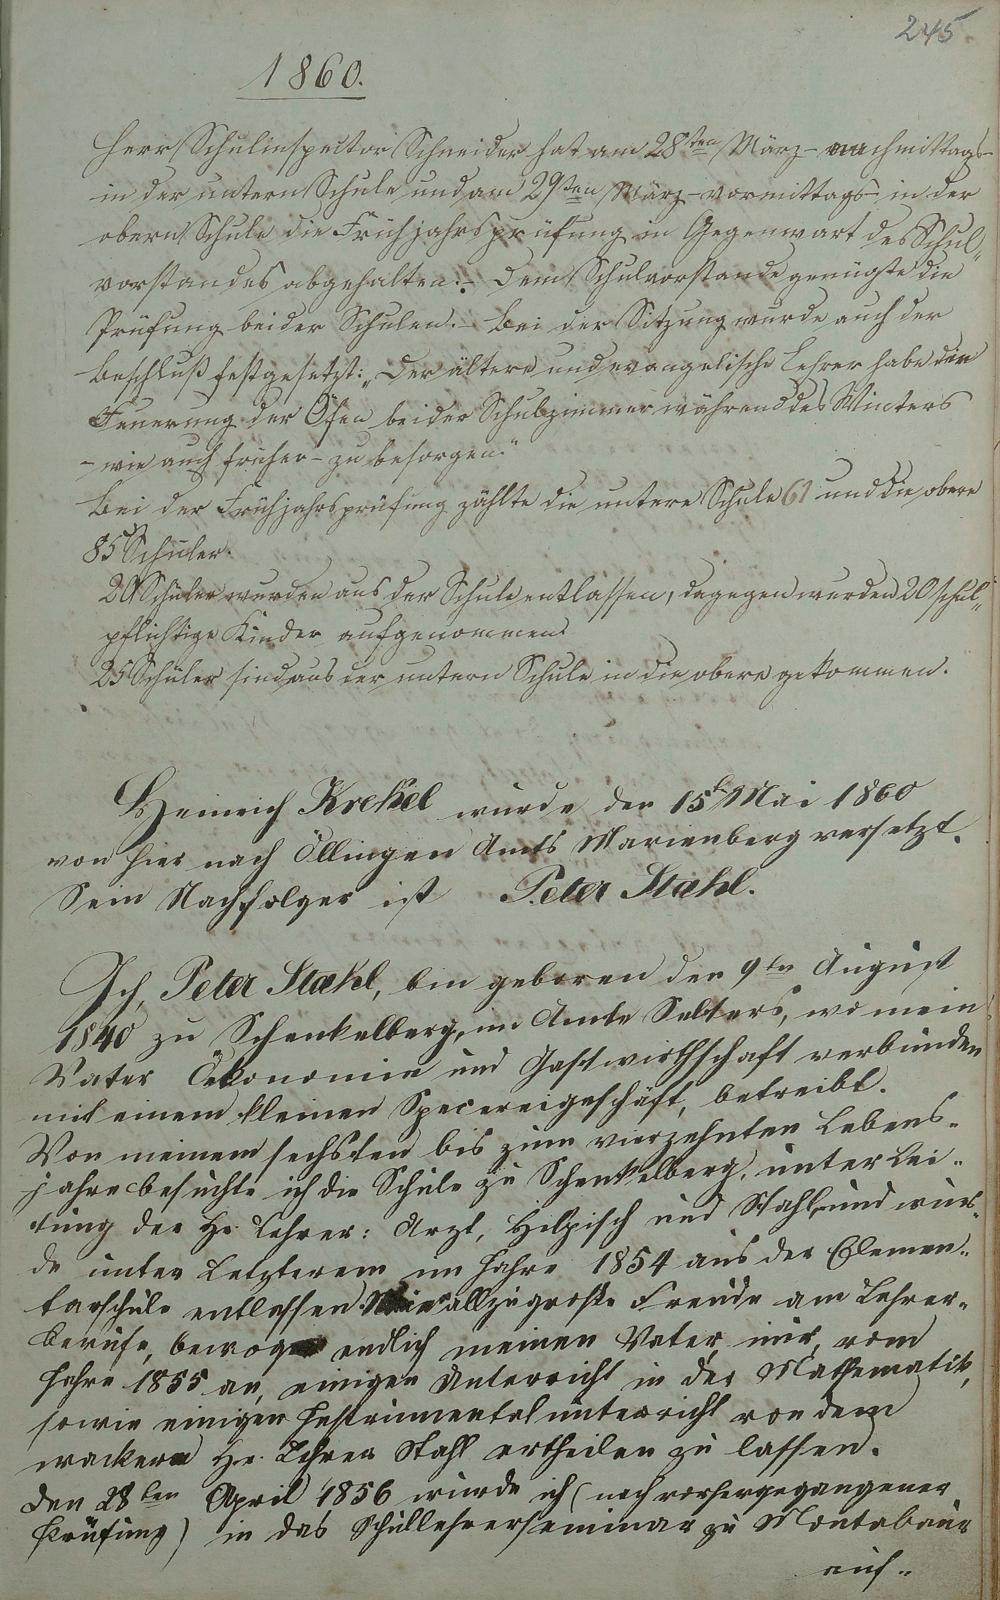 245.
1860.
Herr Schulinspector Schneider hat am 28ten März – nachmittags –
in der untern Schule und am 29ten März – vormittags – in der
obern Schule die Frühjahrsprüfung in Gegenwart des Schul„
vorstandes abgehalten. – Dem Schulvorstande genügte die
Prüfung beider Schulen. – Bei der Sitzung wurde auch der
Beschluß festgesetzt: „Der ältere und evangelische Lehrer habe die
Feuerung der Öfen beider Schulzimmer während des Winters
– wie auch früher – zu besorgen."
Bei der Frühjahrsprüfung zählte die untere Schule 61 und die obere
85 Schüler.
20 Schüler wurden aus der Schule entlassen, dagegen wurden 20 schul„
pflichtige Kinder aufgenommen.
25 Schüler sind aus der untern Schule in die obere gekommen.
Heinrich Krekel wurde den 15t Mai 1860
von hier nach Öllingen Amts Marienberg versetzt.
Sein Nachfolger ist Peter Stahl.
Ich, Peter Stahl, bin geboren den 9ten August
1840 zu Schenkelberg, im Amte Selters, wo mein
Vater Öekonomie und Gastwirthschaft verbunden
mit einem kleinen Specereigeschäft, betreibt.
Von meinem sechsten bis zum vierzehnten Lebens-
jahre besuchte ich die Schule zu Schenkelberg, unter Lei-
tung der Hr. Lehrer: Arzt, Hilpisch und Stahl und wur-
de unter Letzterem im Jahre 1854 aus der Elemen-
tarschule entlassen. Meine allzugroße Freude am Lehrer-
berufe, bewog endlich meinen Vater, mir, vom
Jahre 1855 an, einigen Unterricht in der Mathematik,
sowie einigen Instrumentalunterricht von dem
wackern Hr. Lehrer Stahl ertheilen zu lassen.
Den 28ten April 1856 wurde ich (nach vorhergegangener
Prüfung) in das Schullehrerseminar zu Montabaur
auf-